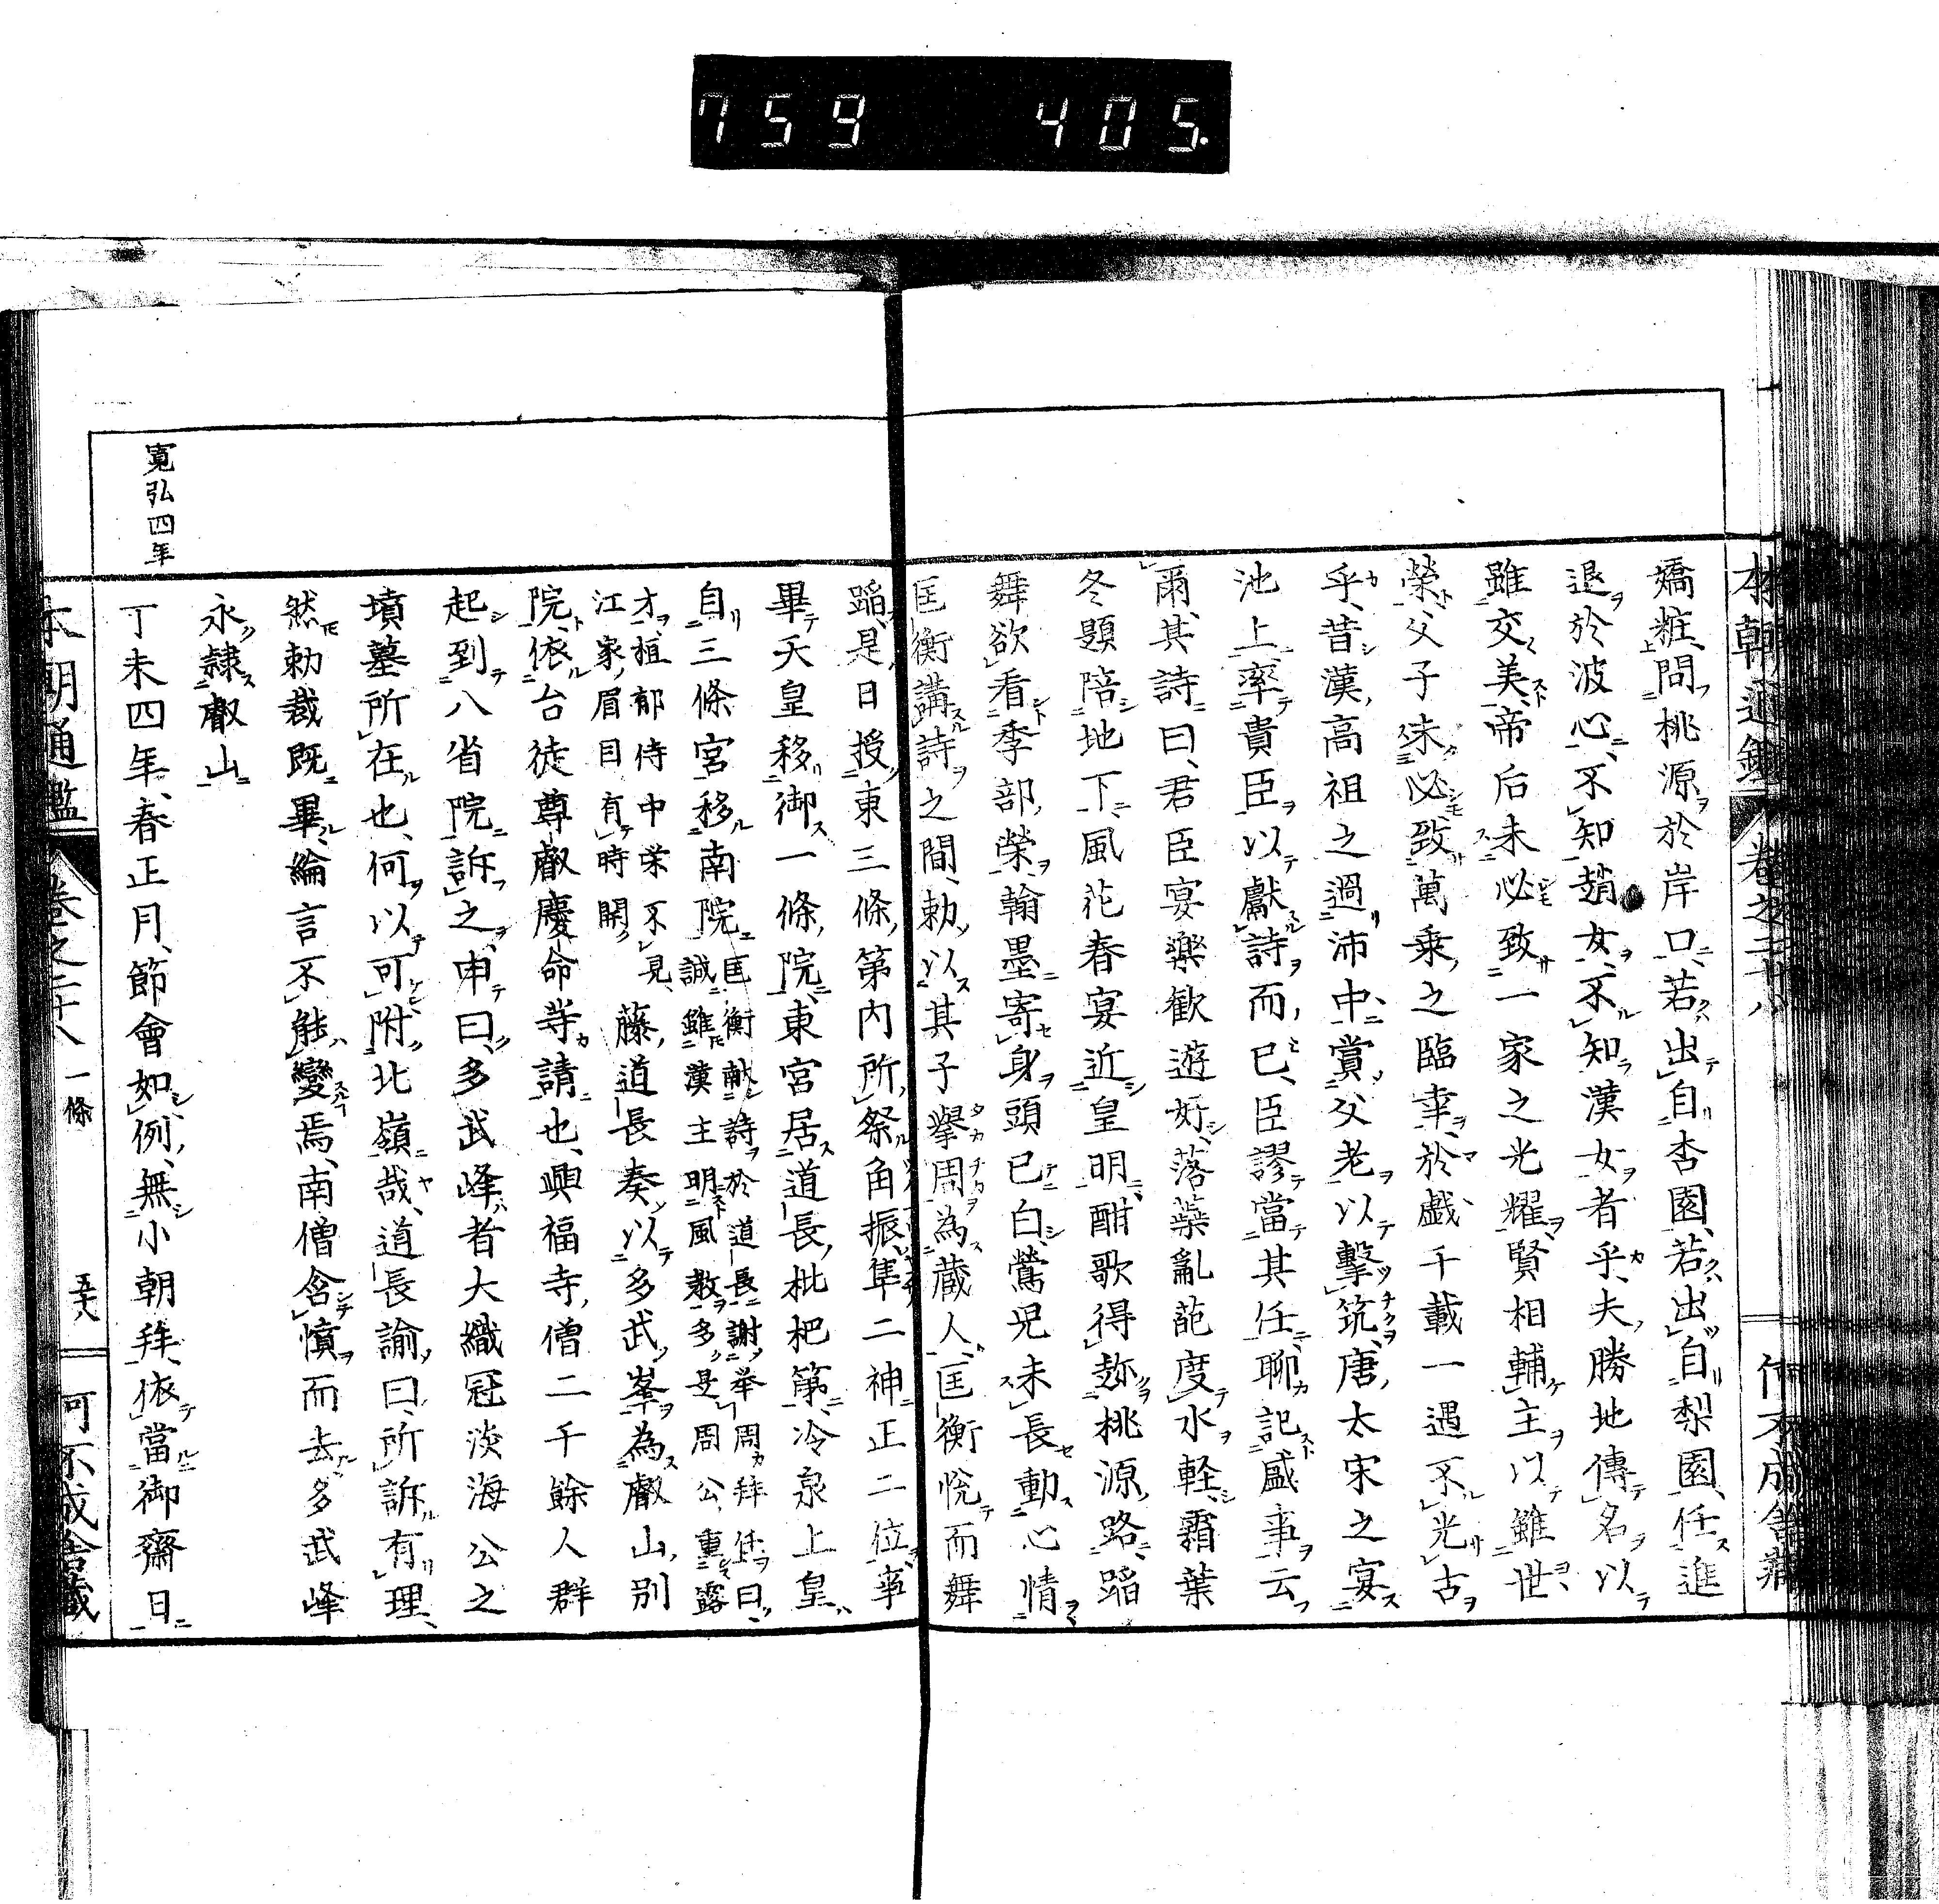 759 405.
本朝通鑑 卷之二十八
嬌粧、問桃源於岸口、若出自杏園、若出自梨園、任進
退於波心、不知趙女、不知漢女者乎、夫勝地傳名以
雖交美、帝后未必致一家之光耀、賢相輔主以雖世
榮、父子未必致萬乗之臨幸、於戲千載一遇不光古
乎、昔漢高祖之過沛中、賞父老以擊筑、唐太宋之宴
池上、率貴臣以獻詩而已、臣謬當其任、聊記盛事云
爾、其詩曰、君臣宴樂歡遊好、落蘂亂葩度水軽、霜葉
冬題陪地下、風花春宴近皇明、酣歌得趂桃源路、蹈
舞欲看季部榮、翰墨寄身頭已白、鶯児未長動心情
匡衡講詩之間、勅以其子擧周為蔵人、匡衡悅而舞
蹈、是日授東三條第内所祭角振隼二神正二位、事
畢天皇移御一條院、東宮居道長枇杷第、冷泉上皇
自三條宮移南院
匡衡献詩於道長謝挙周拜侍曰、
誠雖漢主明風教多是周公重露
才、桓郁侍中栄不見、
江家眉目有時開
藤道長奏以多武峯為叡山別
院、依台徒尊叡慶命等請也、興福寺僧二千餘人群
起到八省院訴之、申曰、多武峰者大織冠淡海公之
墳墓所在也、何以可附北嶺哉、道長諭曰、所訴有理、
然勅裁既畢、綸言不能變焉、南僧含憤而去多武峰
永隸叡山
寛弘四年
丁未四年、春正月、節會如例、無小朝拜、依當御齋日
本朝通鑑 卷之二十八 一條 五十八